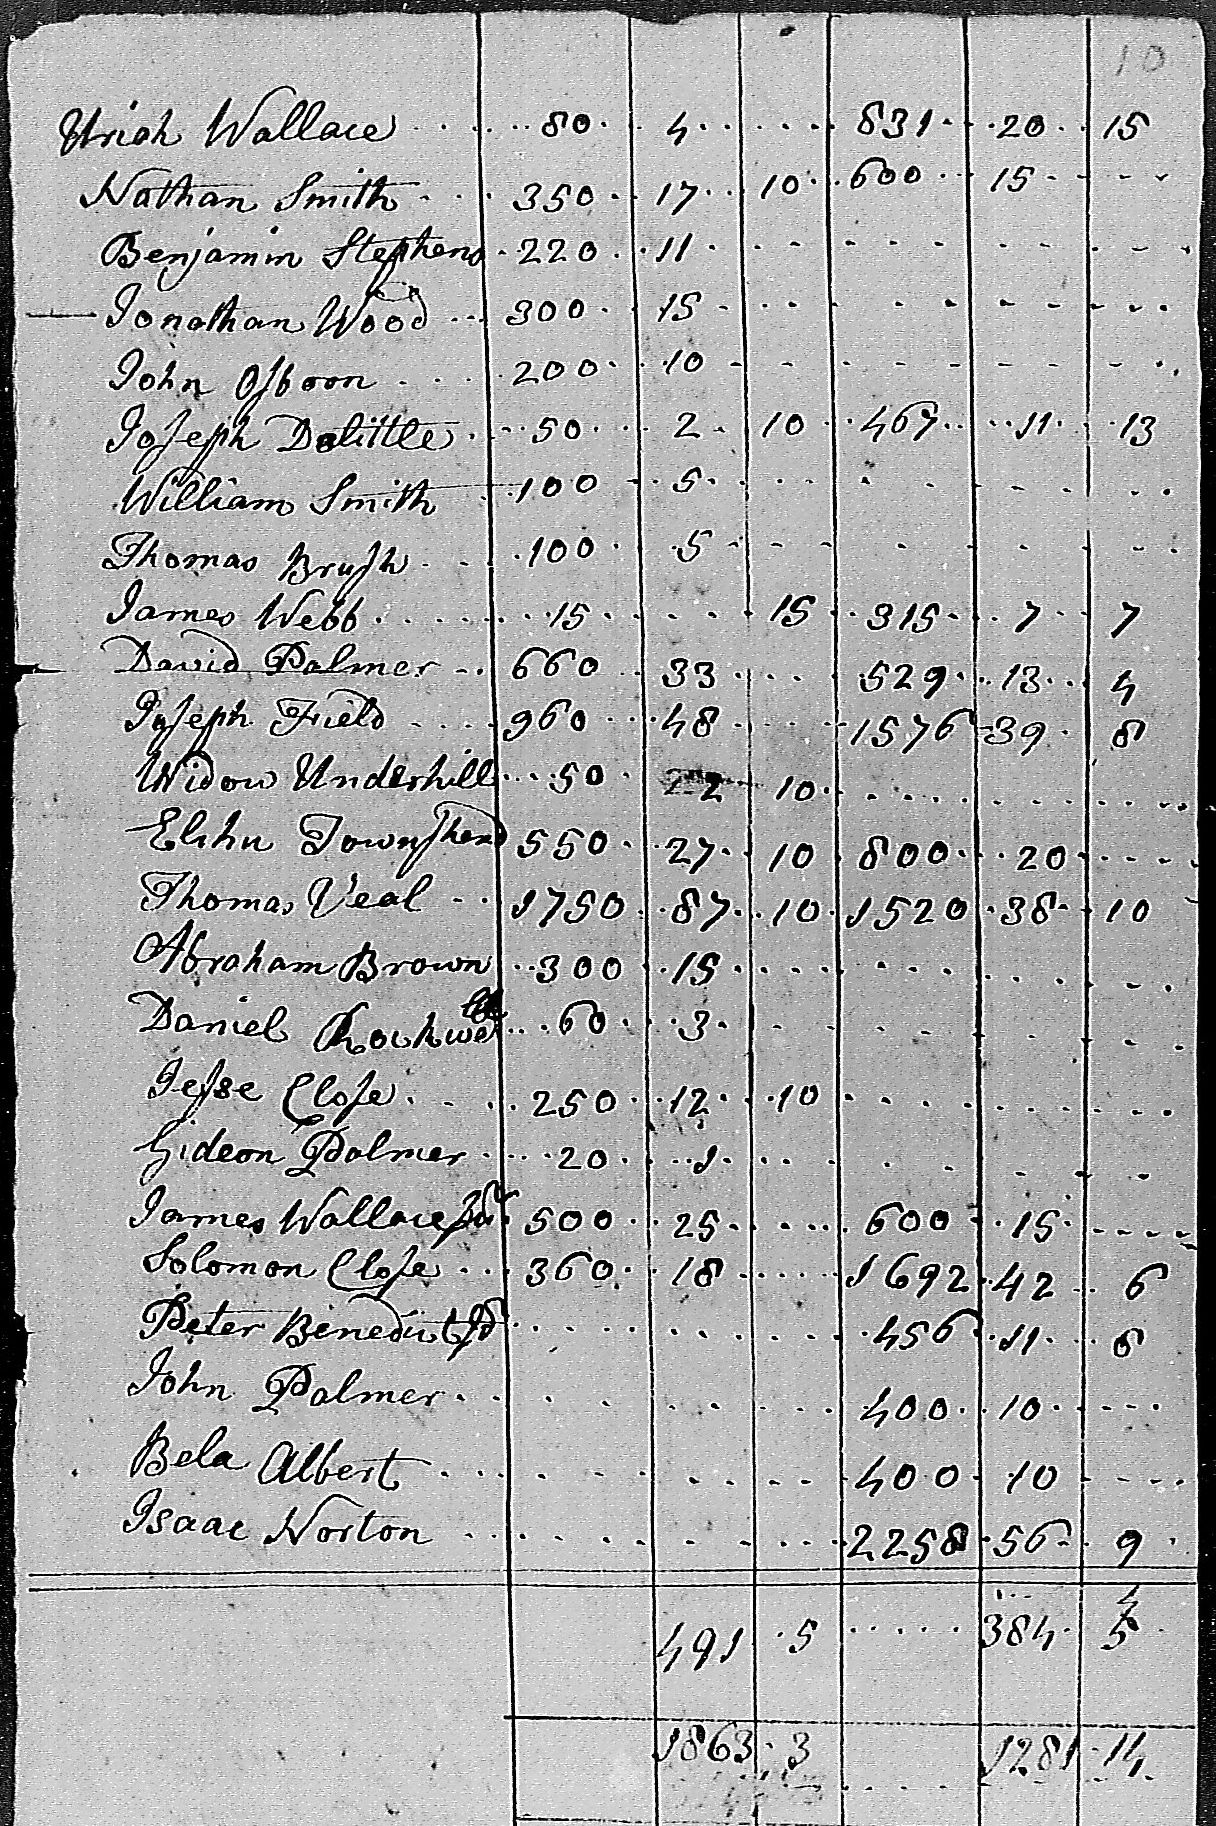 10
Uriah Wallace 80 4 831 20 15
Nathan Smith 350 17 10 600 15
Benjamin Stephens 220 11
Jonathan Wood 300 15
John Osboon 200 10
Joseph Dolittle 50 2 10 467 11 13
William Smith 100 5
Thomas Brush 100 5
James Webb 15 15 315 7 7
David Palmer 660 33 529 13 4
Joseph Field 960 48 1576 39 8
Widow Underhill 50 2 10
Elihu Townshend 550 27 10 800 20
Thomas Veal 1750 87 10 1520 38 10
Abraham Brown 300 15
Daniel Rockwell 60 3
Jesse Close 250 12 10
Gideon Palmer 20 1
James Wallace 500 25 600 15
Solomon Close 360 18 1692 42 6
Peter Benedict 456 11 8
John Palmer 400 10
Bela Albert 400 10
Isaac Norton 2258 56 9
491 5 384 5
1863 3 1281 14